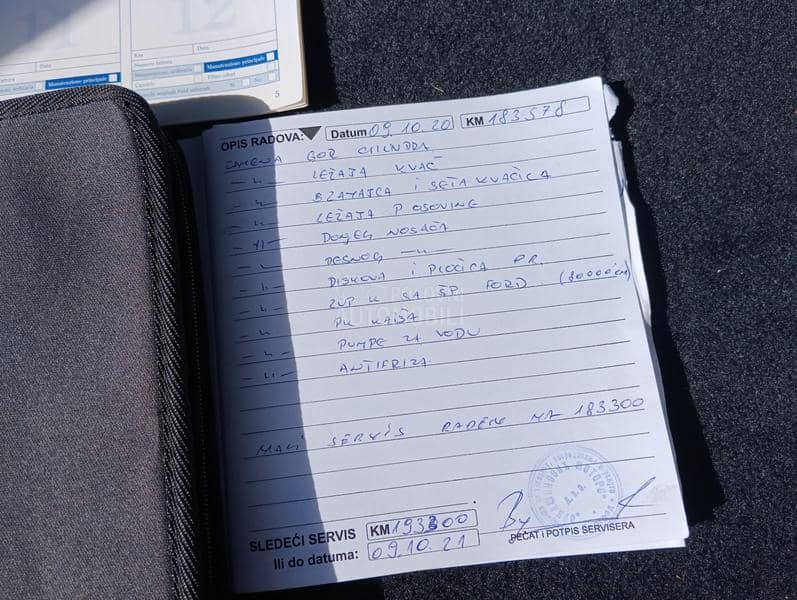 11
12
Km
Data
Data
Manutenzione principale
Manutenzione principale
5
OPIS RADOVA: Datum 09.10.20 KM 183578
ZAMENA GOR CILINDRA
-"- LEŽAJA KVAČ
-"- BZAJAICA I SETA KVAČICA
-"- LEŽAJA P OSOVINE
-"- DONJEG NOSAČA
-"- DESNOG -"-
-"- DISKOVA I PLOČICA PR.
-"- ZUP K SA ŠP. FORD (80000km)
-"- PK KAIŠA
-"- PUMPE ZA VODU
-"- ANTIFRIZA
POLOVNI AUTOMOBILI
MALI SERVIS RAĐEN NA 183300
SLEDEĆI SERVIS KM 193300
Ili do datuma: 09.10.21
PEČAT i POTPIS SERVISERA